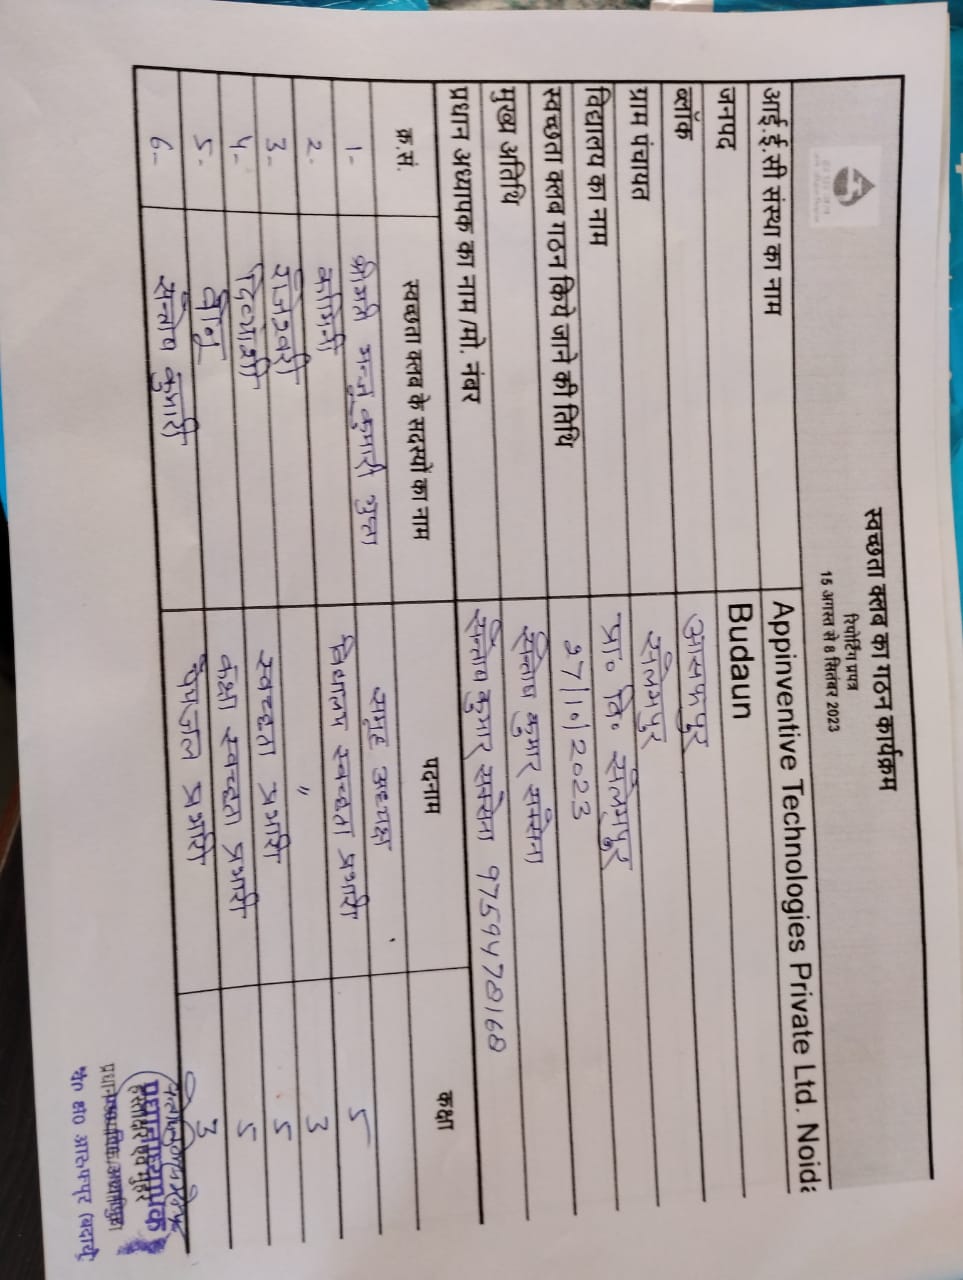 स्वच्छता क्लब का गठन कार्यक्रम
रिपोर्टिंग प्रपत्र
15 अगस्त से 8 सितंबर 2023
आई.ई.सी संस्था का नाम Appinventive Technologies Private Ltd. Noida
जनपद Budaun
ब्लॉक आसफपुर
ग्राम पंचायत सलेमपुर
विद्यालय का नाम प्रा० वि० सलेमपुर
स्वच्छता क्लब गठन किये जाने की तिथि
मुख्य अतिथि कुमार सक्सेना
प्रधान अध्यापक का नाम /मो. नंबर कुमार सक्सेना 9759478168
क्र.सं. स्वच्छता क्लब के सदस्यों का नाम पदनाम कक्षा
1- श्रीमती कुमारी गुप्ता समूह अध्यक्ष
2- विद्यालय स्वच्छता प्रभारी 5
3- राजेश्वरी " 3
4- दिव्यांशी स्वच्छता प्रभारी 5
5- कक्षा स्वच्छता प्रभारी 5
6- कुमारी पेयजल प्रभारी 3
हस्ताक्षर एवं मुहर
प्रधानाध्यापक
आसफपुर (बदायूं)